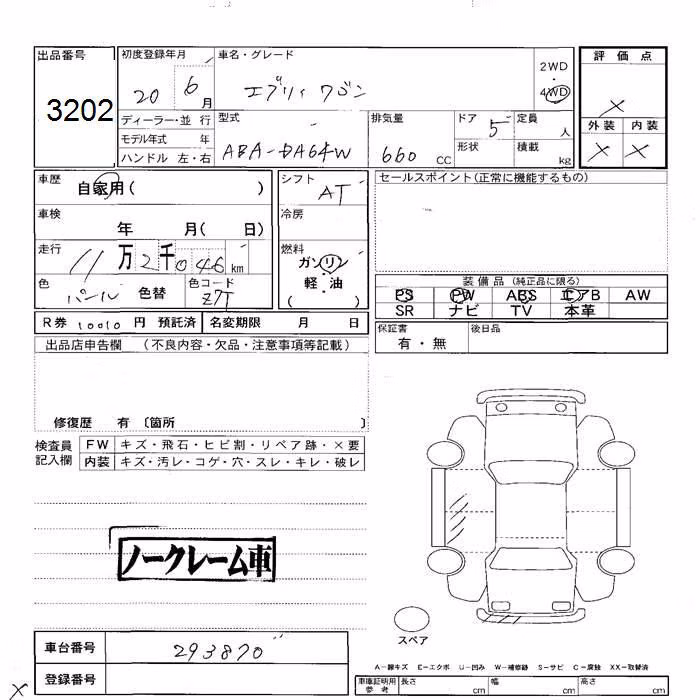 出品番号 初度登録年月 車名・グレード 評価点
3202 20 6月 エブリィ ワゴン 2WD 4WD ×
ディーラー・並行 型式 排気量 ドア 5 定員 人 外装 内装
モデル年式 年 形状 積載
ハンドル 左・右 ABA-DA64W 660 CC kg × ×
車歴 自家用( ) シフト AT セールスポイント(正常に機能するもの)
車検 年 月( 日) 冷房
走行 11万2千046km 燃料 ガソリン
色 パール 色替 色コード Z7T 軽・油 ( )
装備品 (純正品に限る)
PS PW ABS エアB AW
SR ナビ TV 本革
R券 10010 円 預託済 名変期限 月 日
保証書 有・無 後日品
出品店申告欄 (不良内容・欠品・注意事項等記載)
修復歴 有 〔箇所 〕
検査員 FW キズ・飛石・ヒビ割・リペア跡・×要
記入欄 内装 キズ・汚レ・コゲ・穴・スレ・キレ・破レ
ノークレーム車
スペア
車台番号 293870
登録番号
×
A-線キズ E-エクボ U-凹み W-補修跡 S-サビ C-腐蝕 XX-取替済
車庫証明用 参考 長さ cm 幅 cm 高さ cm